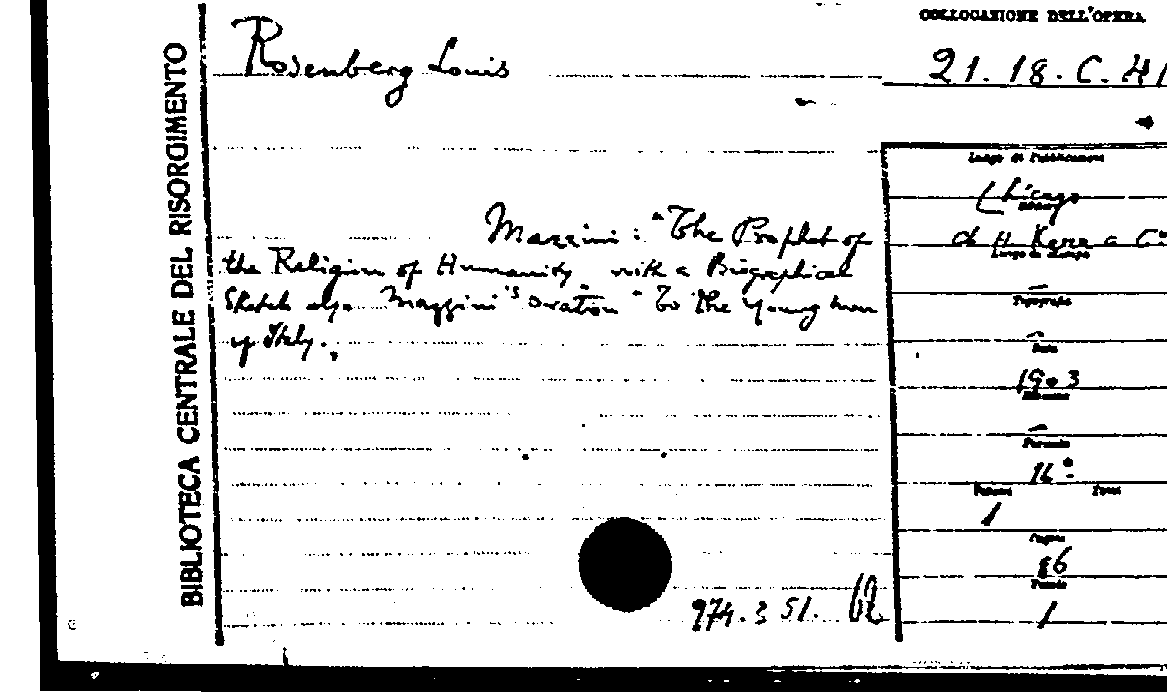 BIBLIOTECA CENTRALE DEL RISORGIMENTO
Rosenberg Louis
Mazzini: "The Prophet of
the Religion of Humanity with a Biographical
Sketch also Mazzini's oration "To the Young men
of Italy.
974.3 51.
COLLOCAZIONE DELL'OPERA
21. 18. C. 41
Luogo di Pubblicazione
Chicago
Ch H. Kerr a Co
Luogo di stampa
Tipografo
Data
1903
Edizione
Formato
16°
Volumi Tomi
1
Pagine
86
1